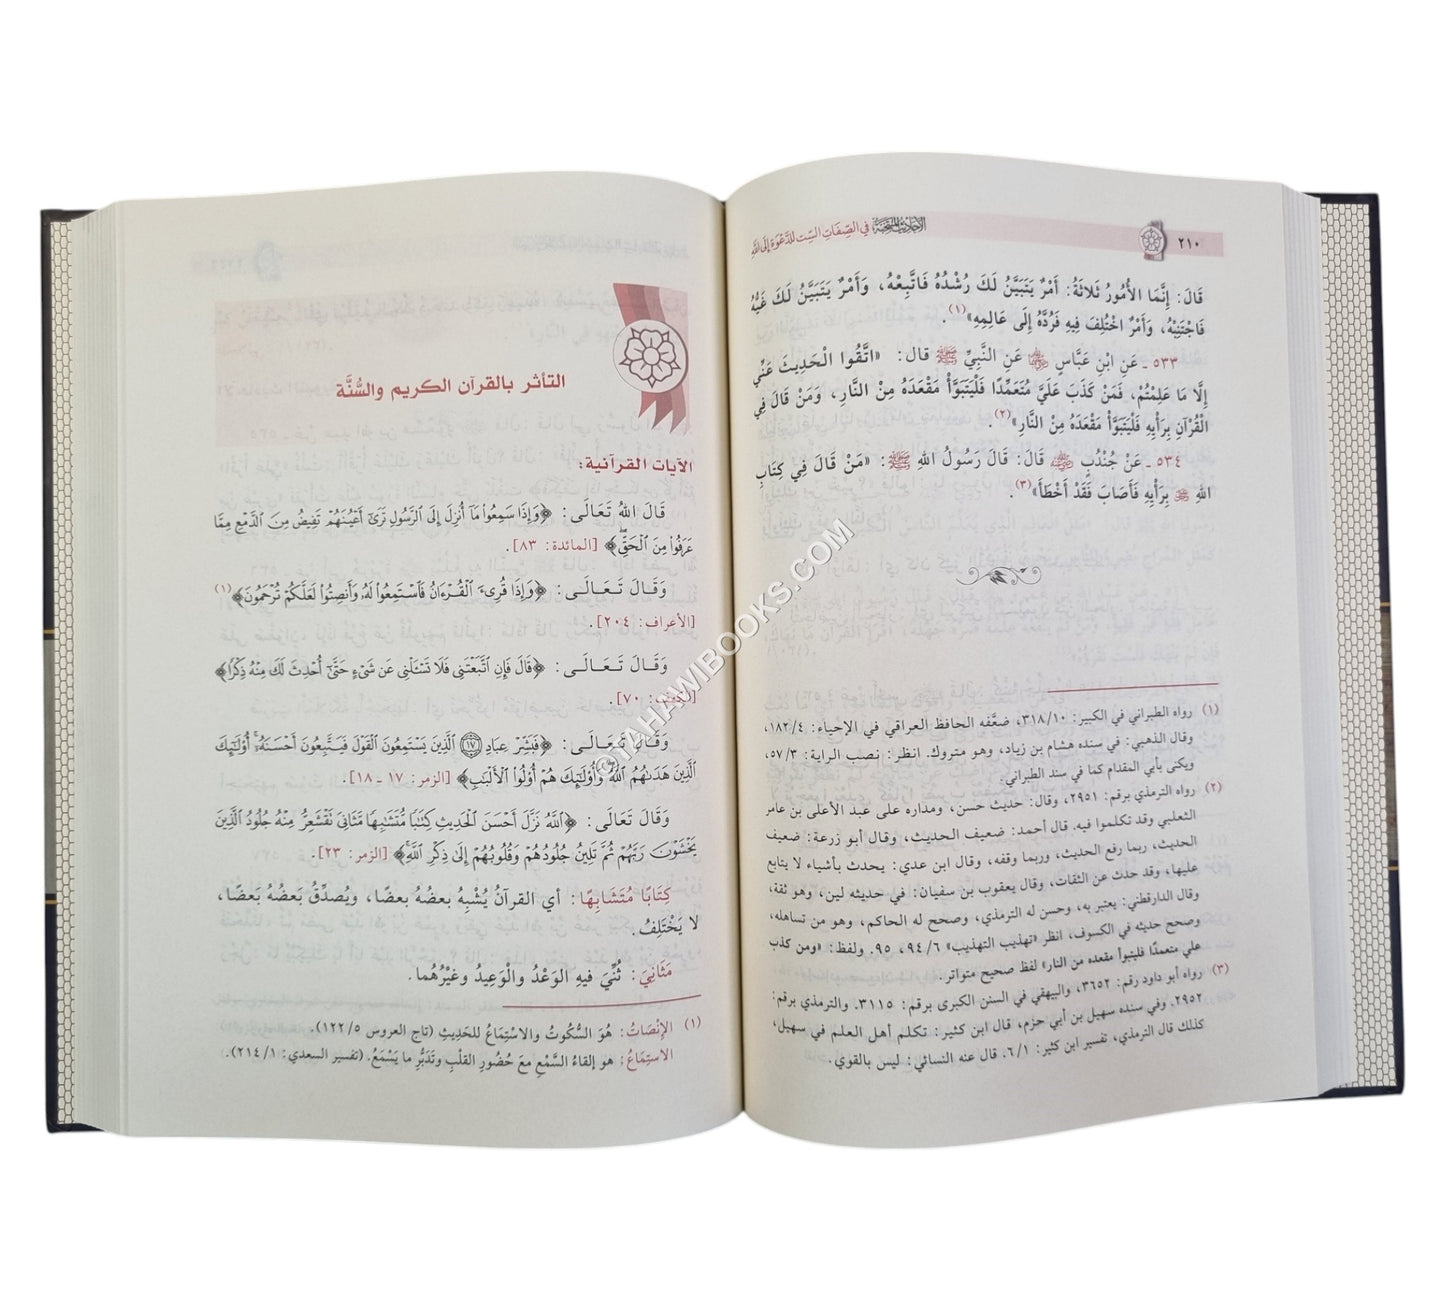 ٢١٠
الأحاديث المنتخبة في الصِّفَاتِ السِّت للدَّعْوَة إلَى اللَّهِ
قَالَ: إِنَّمَا الأُمُورُ ثَلاثَةٌ: أَمْرٌ يَتَبَيَّنُ لَكَ رُشْدُهُ فَاتَّبِعْهُ، وَأَمْرٌ يَتَبَيَّنُ لَكَ غَيُّهُ
فَاجْتَنِبْهُ، وَأَمْرٌ اخْتُلِفَ فِيهِ فَرُدَّهُ إِلَى عَالِمِهِ»(١).
٥٣٣ ـ عَنِ ابْنِ عَبَّاسٍ رضي الله عنهما عَنِ النَّبِيِّ ﷺ قال: «اتَّقُوا الْحَدِيثَ عَنِّي
إِلَّا مَا عَلِمْتُمْ، فَمَنْ كَذَبَ عَلَيَّ مُتَعَمِّدًا فَلْيَتَبَوَّأْ مَقْعَدَهُ مِنَ النَّارِ، وَمَنْ قَالَ فِي
الْقُرْآنِ بِرَأْيِهِ فَلْيَتَبَوَّأْ مَقْعَدَهُ مِنَ النَّارِ»(٢).
٥٣٤ ـ عَنْ جُنْدُبٍ رضي الله عنه قَالَ: قَالَ رَسُولُ اللهِ ﷺ: «مَنْ قَالَ فِي كِتَابِ
اللهِ ﷻ بِرَأْيِهِ فَأَصَابَ فَقَدْ أَخْطَأَ»(٣).
(١) رواه الطبراني في الكبير: ٣١٨/١٠، ضعَّفه الحافظ العراقي في الإحياء: ١٨٢/٤،
وقال الذهبي: في سنده هشام بن زياد، وهو متروك. انظر: نصب الراية: ٥٧/٣،
ويكنى بأبي المقدام كما في سند الطبراني.
(٢) رواه الترمذي برقم: ٢٩٥١، وقال: حديث حسن، ومداره على عبد الأعلى بن عامر
الثعلبي وقد تكلموا فيه. قال أحمد: ضعيف الحديث، وقال أبو زرعة: ضعيف
الحديث، ربما رفع الحديث، وربما وقفه، وقال ابن عدي: يحدث بأشياء لا يتابع
عليها، وقد حدث عن الثقات، وقال يعقوب بن سفيان: في حديثه لين، وهو ثقة،
وقال الدارقطني: يعتبر به، وحسن له الترمذي، وصحح له الحاكم، وهو من تساهله،
وصحح حديثه في الكسوف، انظر «تهذيب التهذيب» ٩٤/٦، ٩٥. ولفظ: «ومن كذب
علي متعمدًا فليتبوأ مقعده من النار» لفظ صحيح متواتر.
(٣) رواه أبو داود رقم: ٣٦٥٢، والبيهقي في السنن الكبرى برقم: ٣١١٥. والترمذي برقم:
٢٩٥٢. وفي سنده سهيل بن أبي حزم، قال ابن كثير: تكلم أهل العلم في سهيل،
كذلك قال الترمذي، تفسير ابن كثير: ٦/١. قال عنه النسائي: ليس بالقوي.
التأثر بالقرآن الكريم والسُّنَّة
الآيات القرآنية:
قَالَ اللهُ تَعَالَى: ﴿وَإِذَا سَمِعُواْ مَآ أُنزِلَ إِلَى ٱلرَّسُولِ تَرَىٰٓ أَعْيُنَهُمْ تَفِيضُ مِنَ ٱلدَّمْعِ مِمَّا
عَرَفُواْ مِنَ ٱلْحَقِّۖ﴾ [المائدة: ٨٣].
وَقَالَ تَعَالَى: ﴿وَإِذَا قُرِئَ ٱلْقُرْءَانُ فَٱسْتَمِعُواْ لَهُۥ وَأَنصِتُواْ لَعَلَّكُمْ تُرْحَمُونَ﴾(١)
[الأعراف: ٢٠٤].
وَقَالَ تَعَالَى: ﴿قَالَ فَإِنِ ٱتَّبَعْتَنِي فَلَا تَسْـَٔلْنِي عَن شَىْءٍ حَتَّىٰٓ أُحْدِثَ لَكَ مِنْهُ ذِكْرًا﴾
[الكهف: ٧٠].
وَقَالَ تَعَالَى: ﴿فَبَشِّرْ عِبَادِ ۝١٧ ٱلَّذِينَ يَسْتَمِعُونَ ٱلْقَوْلَ فَيَتَّبِعُونَ أَحْسَنَهُۥٓۚ أُوْلَٰٓئِكَ
ٱلَّذِينَ هَدَىٰهُمُ ٱللَّهُۖ وَأُوْلَٰٓئِكَ هُمْ أُوْلُواْ ٱلْأَلْبَٰبِ﴾ [الزمر: ١٧ ـ ١٨].
وَقَالَ تَعَالَى: ﴿ٱللَّهُ نَزَّلَ أَحْسَنَ ٱلْحَدِيثِ كِتَٰبًا مُّتَشَٰبِهًا مَّثَانِيَ تَقْشَعِرُّ مِنْهُ جُلُودُ ٱلَّذِينَ
يَخْشَوْنَ رَبَّهُمْ ثُمَّ تَلِينُ جُلُودُهُمْ وَقُلُوبُهُمْ إِلَىٰ ذِكْرِ ٱللَّهِ﴾ [الزمر: ٢٣].
كِتَابًا مُتَشَابِهًا: أي القرآنُ يُشْبِهُ بعضُهُ بعضًا، ويُصدِّقُ بَعضُهُ بَعضًا،
لا يَخْتَلِفُ.
مَثَانِيَ: ثُنِّيَ فيهِ الوَعْدُ والْوَعِيدُ وغيْرُهُما.
(١) الإنْصَاتُ: هُوَ السُّكُوتُ والاسْتِمَاعُ للحَدِيثِ (تاج العروس ١٢٢/٥).
الاستِمَاعُ: هو إلقاءُ السَّمْعِ معَ حُضُورِ القلْبِ وتَدَبُّرِ ما يَسْمَعُ. (تفسير السعدي: ٢١٤/١).
©TAHAWIBOOKS.COM